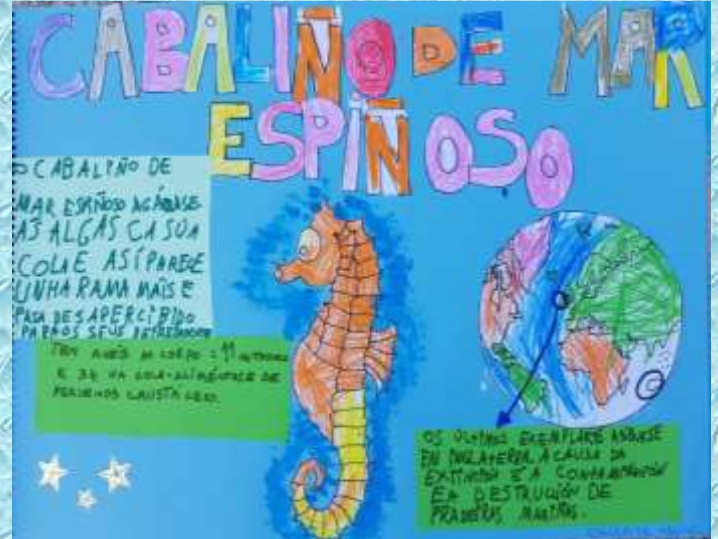 CABALIÑO DE MAR
ESPIÑOSO
O CABALIÑO DE
MAR ESPIÑOSO AGÁRRASE
ÁS ALGAS CA SÚA
COLA E ASÍ PARECE
UNHA RAMA MÁIS E
PASA DESAPERCIBIDO
PARA OS SEUS
TEN ANEIS NO CORPO : 11
E 34 NA COLA. ALIMÉNTASE DE
PEQUENOS CRUSTACEOS.
OS ÚLTIMOS EXEMPLARES
EN INGLATERRA. A CAUSA DA
EXTINCIÓN É A CONTAMINACIÓN
E A DESTRUCIÓN DE
PRADEIRAS MARIÑAS.